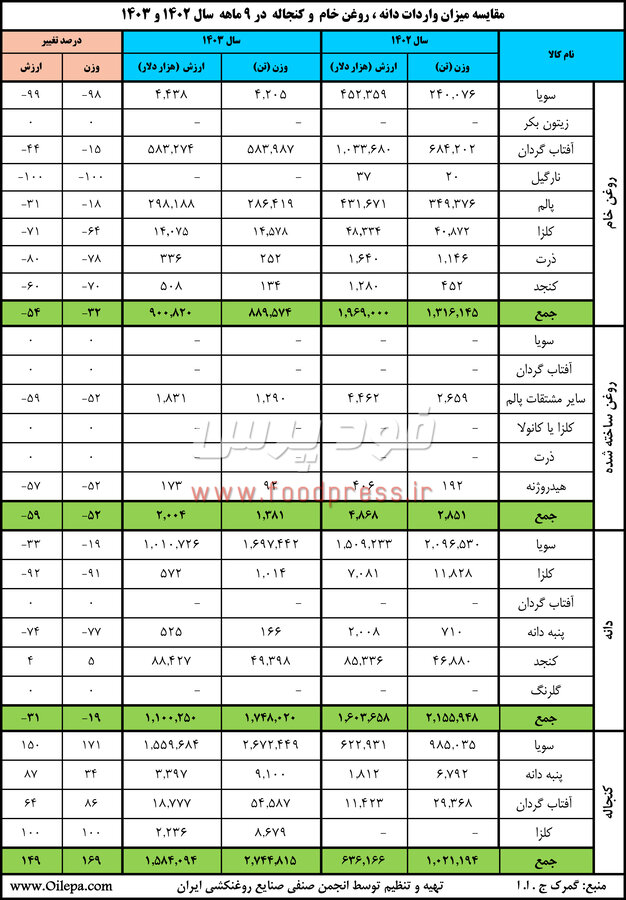 مقایسه میزان واردات دانه ، روغن خام و کنجاله در ۹ ماهه سال ۱۴۰۲ و ۱۴۰۳
نام کالا سال ۱۴۰۲ سال ۱۴۰۳ درصد تغییر
وزن (تن) ارزش (هزار دلار) وزن (تن) ارزش (هزار دلار) وزن ارزش
روغن خام
سویا ۲۴۰,۰۷۶ ۴۵۲,۳۵۹ ۴,۲۰۵ ۴,۴۳۸ -۹۸ -۹۹
زیتون بکر - - - - ۰ ۰
آفتاب گردان ۶۸۴,۲۰۲ ۱,۰۳۳,۶۸۰ ۵۸۳,۹۸۷ ۵۸۳,۲۷۴ -۱۵ -۴۴
نارگیل ۲۰ ۳۷ - - -۱۰۰ -۱۰۰
پالم ۳۴۹,۳۷۶ ۴۳۱,۶۷۱ ۲۸۶,۴۱۹ ۲۹۸,۱۸۸ -۱۸ -۳۱
کلزا ۴۰,۸۷۲ ۴۸,۳۳۴ ۱۴,۵۷۸ ۱۴,۰۷۵ -۶۴ -۷۱
ذرت ۱,۱۴۶ ۱,۶۴۰ ۲۵۲ ۳۳۶ -۷۸ -۸۰
کنجد ۴۵۲ ۱,۲۸۰ ۱۳۴ ۵۰۸ -۷۰ -۶۰
جمع ۱,۳۱۶,۱۴۵ ۱,۹۶۹,۰۰۰ ۸۸۹,۵۷۴ ۹۰۰,۸۲۰ -۳۲ -۵۴
روغن ساخته شده
سویا - - - - ۰ ۰
آفتاب گردان - - - - ۰ ۰
سایر مشتقات پالم ۲,۶۵۹ ۴,۴۶۲ ۱,۲۹۰ ۱,۸۳۱ -۵۲ -۵۹
کلزا یا کانولا - - - - ۰ ۰
ذرت - - - - ۰ ۰
هیدروژنه ۱۹۲ ۴۰۶ ۹۲ ۱۷۳ -۵۲ -۵۷
جمع ۲,۸۵۱ ۴,۸۶۸ ۱,۳۸۱ ۲,۰۰۴ -۵۲ -۵۹
دانه
سویا ۲,۰۹۶,۵۳۰ ۱,۵۰۹,۲۳۳ ۱,۶۹۷,۴۴۲ ۱,۰۱۰,۷۲۶ -۱۹ -۳۳
کلزا ۱۱,۸۲۸ ۷,۰۸۱ ۱,۰۱۴ ۵۷۲ -۹۱ -۹۲
آفتاب گردان - - - - ۰ ۰
پنبه دانه ۷۱۰ ۲,۰۰۸ ۱۶۶ ۵۲۵ -۷۷ -۷۴
کنجد ۴۶,۸۸۰ ۸۵,۳۳۶ ۴۹,۳۹۸ ۸۸,۴۲۷ ۵ ۴
گلرنگ - - - - ۰ ۰
جمع ۲,۱۵۵,۹۴۸ ۱,۶۰۳,۶۵۸ ۱,۷۴۸,۰۲۰ ۱,۱۰۰,۲۵۰ -۱۹ -۳۱
کنجاله
سویا ۹۸۵,۰۳۵ ۶۲۲,۹۳۱ ۲,۶۷۲,۴۴۹ ۱,۵۵۹,۶۸۴ ۱۷۱ ۱۵۰
پنبه دانه ۶,۷۹۲ ۱,۸۱۲ ۹,۱۰۰ ۳,۳۹۷ ۳۴ ۸۷
آفتاب گردان ۲۹,۳۶۸ ۱۱,۴۲۳ ۵۴,۵۸۷ ۱۸,۷۷۷ ۸۶ ۶۴
کلزا - - ۸,۶۷۹ ۲,۲۳۶ ۱۰۰ ۱۰۰
جمع ۱,۰۲۱,۱۹۴ ۶۳۶,۱۶۶ ۲,۷۴۴,۸۱۵ ۱,۵۸۴,۰۹۴ ۱۶۹ ۱۴۹
منبع: گمرک ج . ا. ا تهیه و تنظیم توسط انجمن صنفی صنایع روغنکشی ایران www.Oilepa.com
فودپرس
www.foodpress.ir